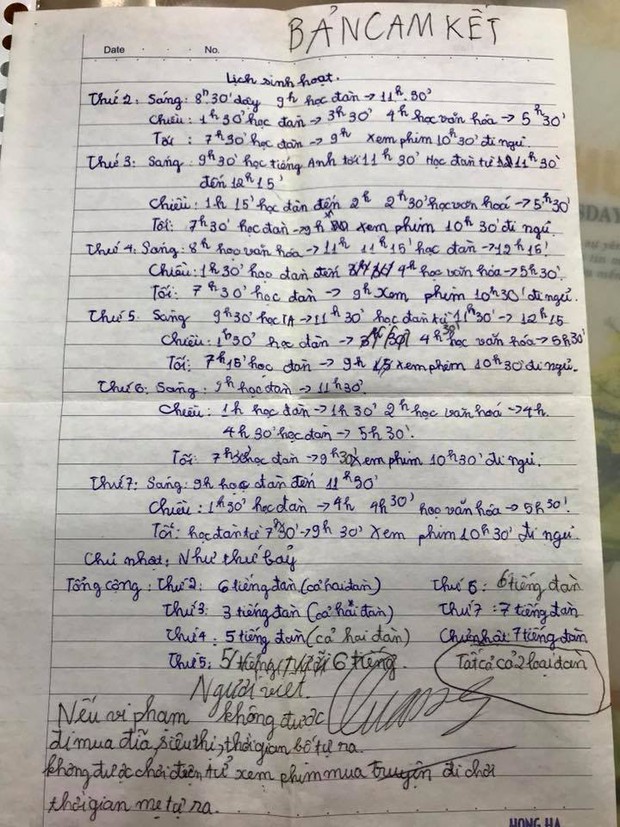 BẢN CAM KẾT
Date . . . No.
Lịch sinh hoạt.
Thứ 2: Sáng: 8h30' dậy 9h học đàn → 11h30'
Chiều: 1h30' học đàn → 3h30' 4h học văn hóa → 5h30'
Tối: 7h30' học đàn → 9h xem phim 10h30' đi ngủ.
Thứ 3: Sáng: 9h30' học tiếng Anh tới 11h30' Học đàn từ 11h30'
đến 12h15'
Chiều: 1h15' học đàn đến 2h 2h30' học văn hoá → 5h30'
Tối: 7h30' học đàn → 9h xem phim 10h30' đi ngủ
Thứ 4: Sáng: 8h học văn hóa → 11h 11h15' học đàn → 12h15'
Chiều: 1h30' học đàn đến 4h học văn hóa → 5h30'.
Tối: 7h30' học đàn → 9h xem phim 10h30' đi ngủ.
Thứ 5: Sáng 9h30' học TA → 11h30' học đàn từ 11h30' → 12h15
Chiều: 1h30' học đàn → 4h30' học văn hóa → 5h30'
Tối: 7h15' học đàn → 9h xem phim 10h30' đi ngủ.
Thứ 6: Sáng: 9h học đàn → 11h30'.
Chiều: 1h học đàn → 1h30' 2h học văn hoá → 4h.
4h30' học đàn → 5h30'.
Tối: 7h30' học đàn → 9h30' xem phim 10h30' đi ngủ.
Thứ 7: Sáng: 9h học đàn đến 11h30'
Chiều: 1h30' học đàn → 4h 4h30' học văn hóa → 5h30'.
Tối: học đàn từ 7h30' → 9h30' xem phim 10h30' đi ngủ
Chủ nhật: Như thứ bảy
Tổng cộng: Thứ 2: 6 tiếng đàn (cả hai đàn) Thứ 6: 6 tiếng đàn
Thứ 3: 3 tiếng đàn (cả hai đàn) Thứ 7: 7 tiếng đàn
Thứ 4: 5 tiếng đàn (cả hai đàn) Chủ nhật: 7 tiếng đàn
Thứ 5: 6 tiếng. Tất cả cả 2 loại đàn
Người viết.
Nếu vi phạm không được
đi mua đĩa, siêu thị, thời gian bố tự ra.
không được chơi điện tử xem phim mua truyện đi chơi
thời gian mẹ tự ra.
HONG HA